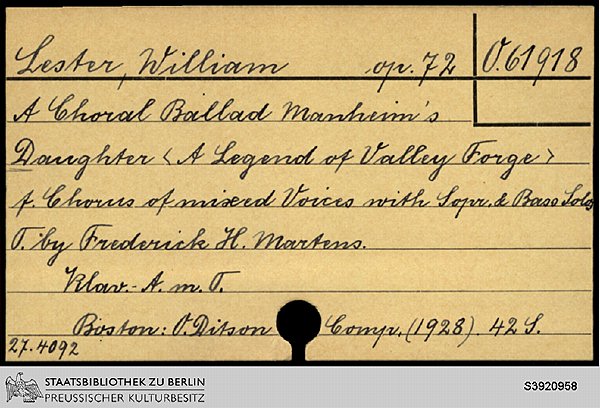 Lester, William op. 72 O.61918
A Choral Ballad Manheim's
Daughter < A Legend of Valley Forge >
f. Chorus of mixed Voices with Sopr. & Bass Solos
T. by Frederick H. Martens.
Klav.-A. m. T.
Boston: O. Ditson Comp. (1928). 42 S.
27.4092
STAATSBIBLIOTHEK ZU BERLIN
PREUSSISCHER KULTURBESITZ
S3920958